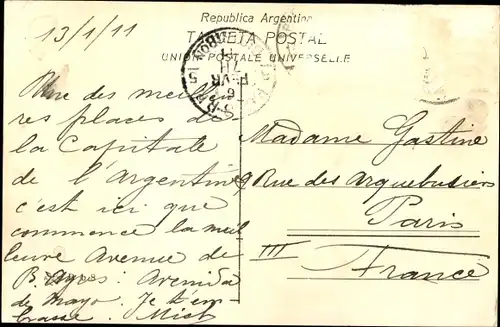 Republica Argentina
TARJETA POSTAL
UNION POSTALE UNIVERSELLE
13/1/11
Une des meilleu
res places de
la Capitale
de l'Argentine
c'est ici que
commence la meil
leure Avenue de
B. Ayres: Avenida
de Mayo. Je t'em-
brasse.
Madame Gastine
9 Rue des Arquebusiers
Paris
III
France